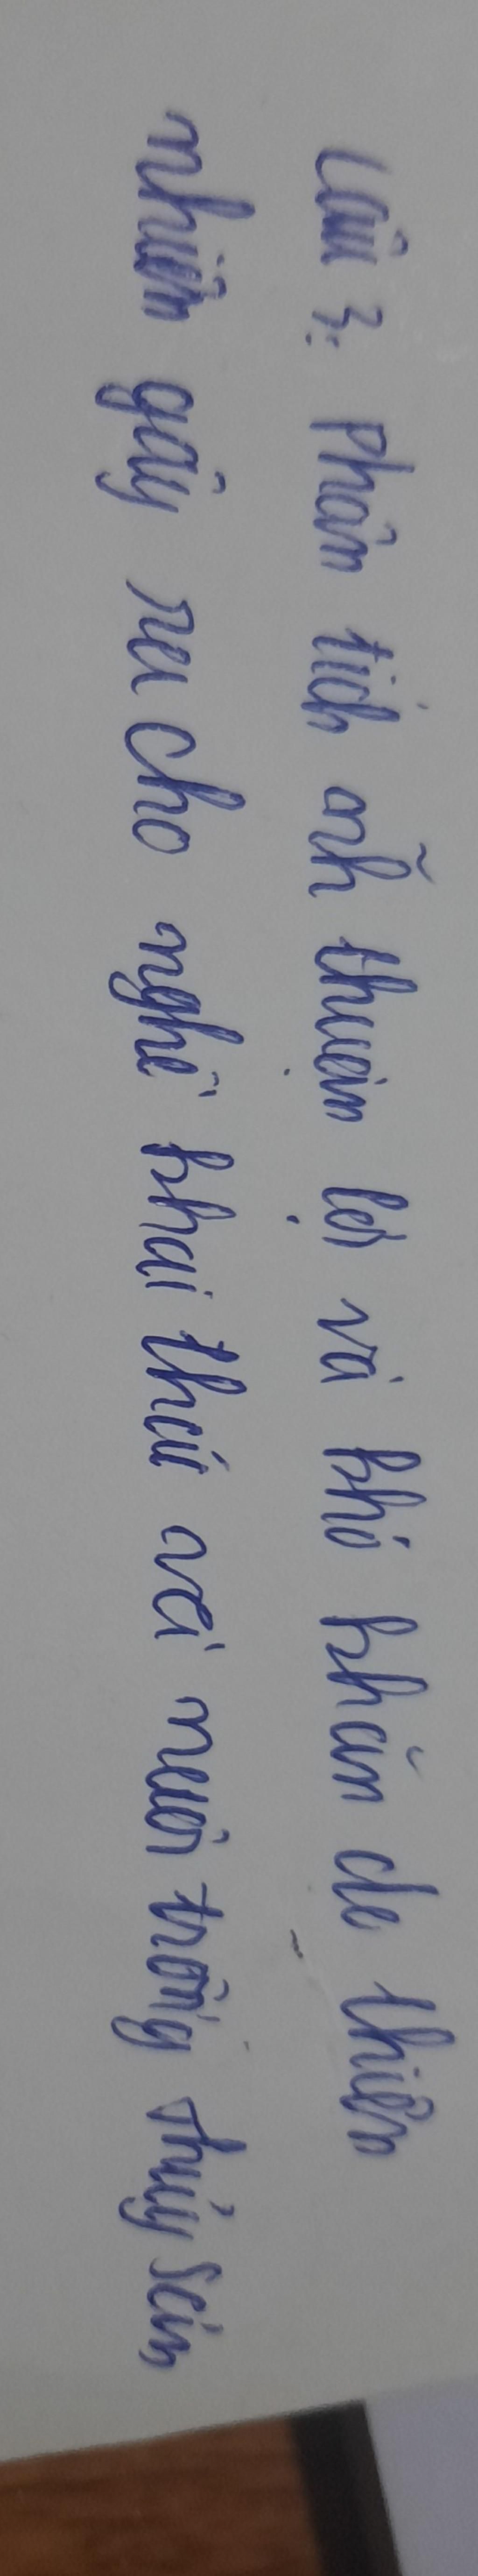 Câu 3: Phân tích nh~ thuận lợi và khó khăn do thiên
nhiên gây ra cho nghề khai thác và nuôi trồng thủy sản